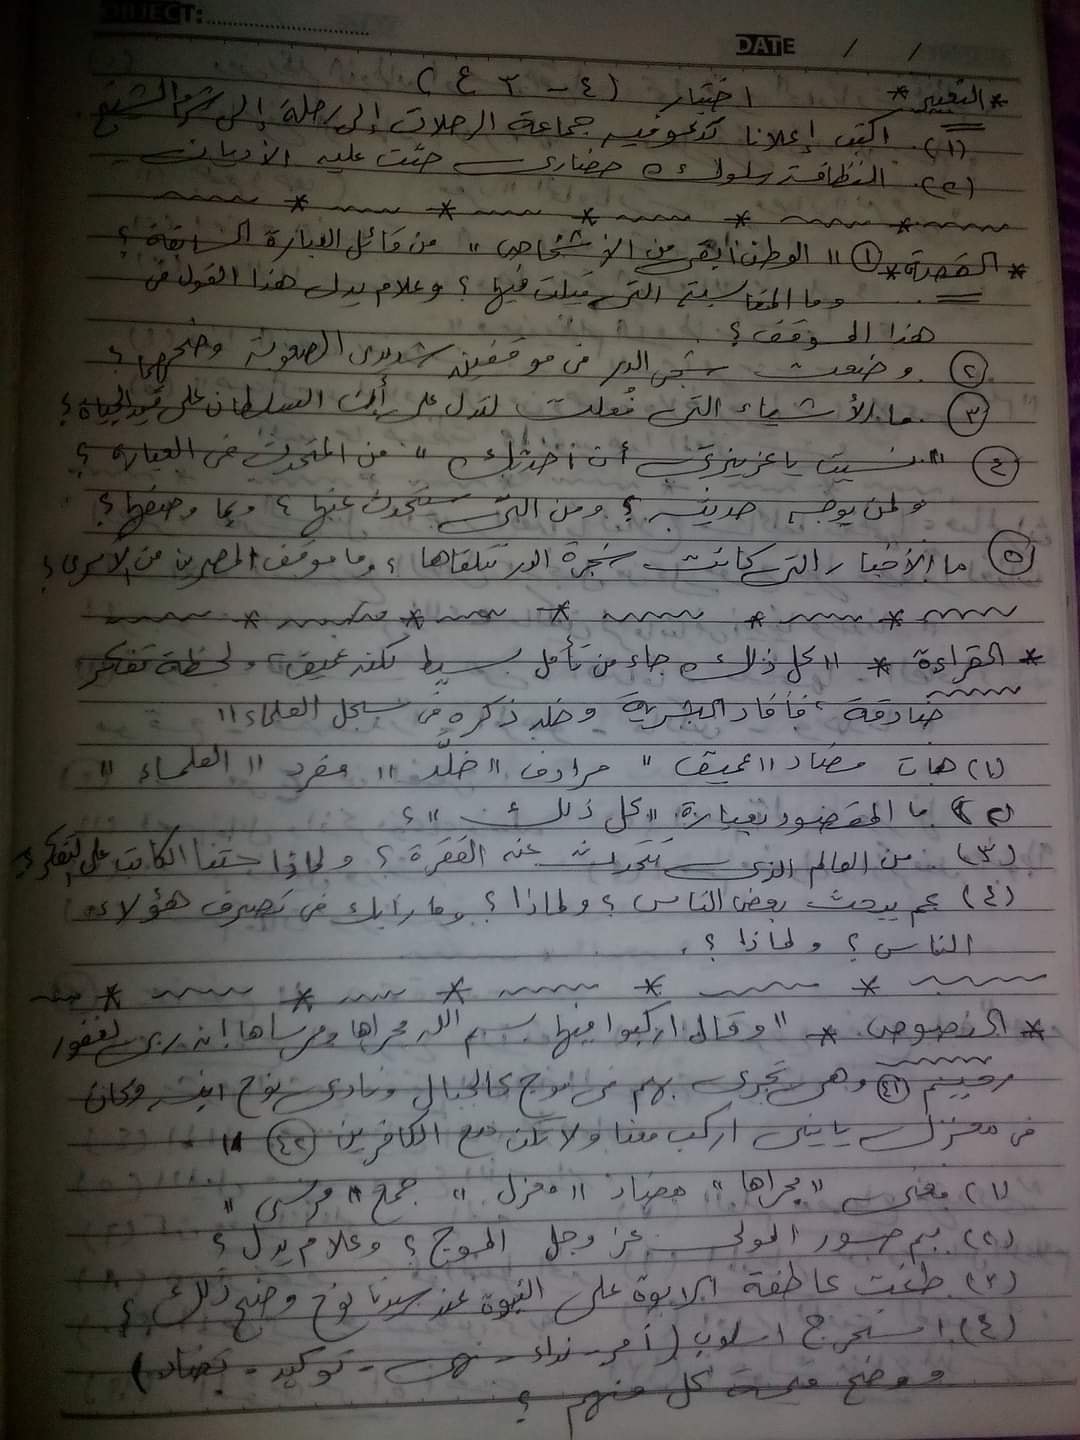 SUBJECT:
DATE / /
* التعبير * اختبار (٤ - ٣ ع)
(١). اكتب إعلانا تدعو فيه جماعة الرحلات إلى رحلة إلى شرم الشيخ.
(٢). النظافة سلوك حضارى حثت عليه الأديان
* القصة * ① "الوطن أبقى من الأشخاص" من قائل العبارة السابقة؟
وما المناسبة التى قيلت فيها؟ وعلام يدل هذا القول فى
هذا الموقف؟
② . وضعت شجر الدر فى موقفين شديدى الصعوبة وضحهما؟
③ . ما الأشياء التى فُعلت لتدل على أن السلطان على قيد الحياة؟
④ "نسيت يا عزيزتى أن أخذتك" من المتحدث فى العبارة؟
ولمن يوجه حديثه؟ ومن التى ستتحدث عنها؟ وبما وصفها؟
⑤ ما الأخبار التى كانت شجرة الدر تتلقاها؟ وما موقف المصريين من الأسرى؟
* القراءة * "كل ذلك جاء من تأمل بسيط لكنه عميق، ولحظة تفكر
صادقة، فأفاد البشرية وخلد ذكره فى سجل العلماء"
(١) هات مضاد "عميق" مرادف "خلَّد" مفرد "العلماء"
(٢) ما المقصود بعبارة "كل ذلك"؟
(٣). من العالم الذى تتحدث عنه الفقرة؟ ولماذا حثنا الكاتب على التفكر؟
(٤) عم يبحث بعض الناس؟ ولماذا؟ وما رأيك فى تصرف هؤلاء
الناس؟ ولماذا؟.
* النصوص * "وقال اركبوا فيها بسم الله مجراها ومرساها إن ربى لغفور
رحيم (٤١) وهى تجرى بهم فى موج كالجبال ونادى نوح ابنه وكان
فى معزل يا بنى اركب معنا ولا تكن مع الكافرين (٤٢)"
(١) معنى "مجراها" مضاد "معزل" جمع "مرسى"
(٢). بم صور المولى عز وجل الموج؟ وعلام يدل؟
(٣). طغت عاطفة الأبوة على النبوة عند سيدنا نوح وضح ذلك؟
(٤). استخرج اسلوب (أمر - نداء - نهى - توكيد - تضاد)
ووضح قيمة كل منهم؟